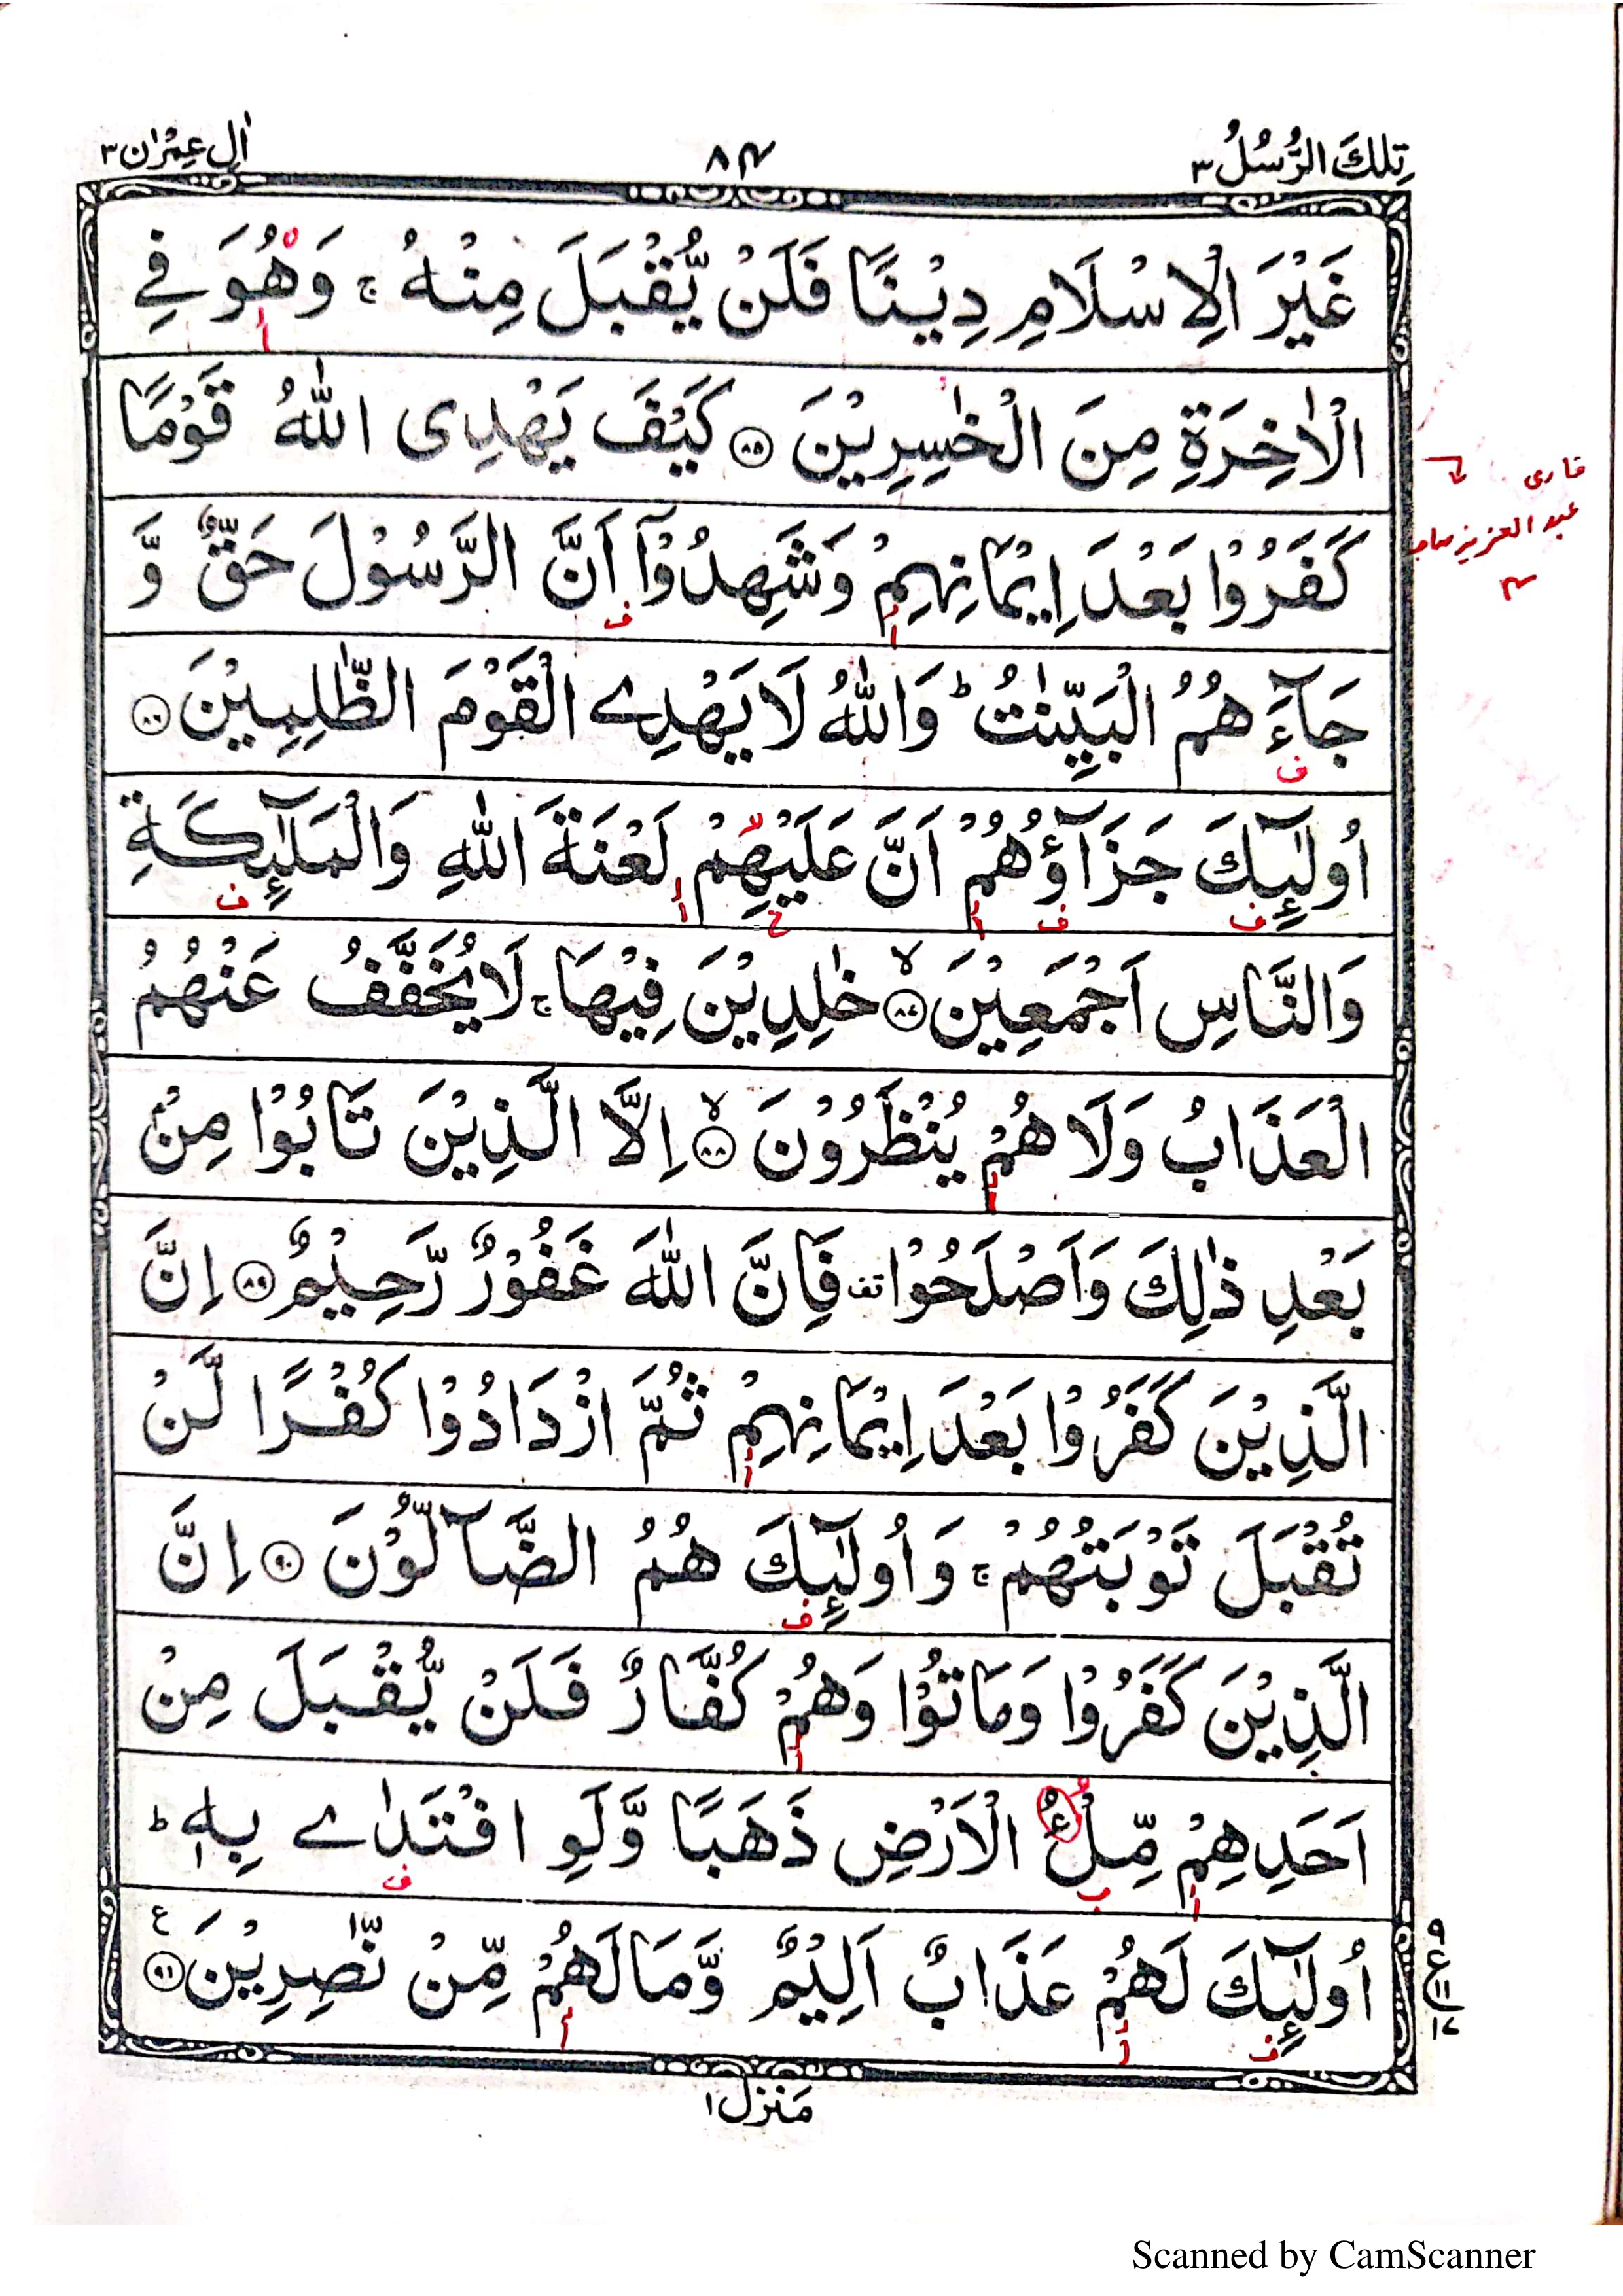 تِلْكَ الرُّسُلُ ٣
٨٤
اٰلِ عِمْرٰن ٣
غَيْرَ الْاِسْلَامِ دِيْنًا فَلَنْ يُّقْبَلَ مِنْهُ ۚ وَهُوَ فِي
الْاٰخِرَةِ مِنَ الْخٰسِرِيْنَ ۝٨٥ كَيْفَ يَهْدِى اللّٰهُ قَوْمًا
قارى
كَفَرُوْا بَعْدَ اِيْمَانِهِمْ وَشَهِدُوْٓا اَنَّ الرَّسُوْلَ حَقٌّ وَّ
عبد العزيز صاحب
جَآءَهُمُ الْبَيِّنٰتُ ؕ وَاللّٰهُ لَا يَهْدِے الْقَوْمَ الظّٰلِمِيْنَ ۝٨٦
اُولٰٓئِكَ جَزَآؤُهُمْ اَنَّ عَلَيْهِمْ لَعْنَةَ اللّٰهِ وَالْمَلٰٓئِكَةِ
وَالنَّاسِ اَجْمَعِيْنَ ۝٨٧ۙ خٰلِدِيْنَ فِيْهَا ۚ لَا يُخَفَّفُ عَنْهُمُ
الْعَذَابُ وَلَا هُمْ يُنْظَرُوْنَ ۝٨٨ۙ اِلَّا الَّذِيْنَ تَابُوْا مِنْۢ
بَعْدِ ذٰلِكَ وَاَصْلَحُوْا قف فَاِنَّ اللّٰهَ غَفُوْرٌ رَّحِيْمٌ ۝٨٩ اِنَّ
الَّذِيْنَ كَفَرُوْا بَعْدَ اِيْمَانِهِمْ ثُمَّ ازْدَادُوْا كُفْرًا لَّنْ
تُقْبَلَ تَوْبَتُهُمْ ۚ وَاُولٰٓئِكَ هُمُ الضَّآلُّوْنَ ۝٩٠ اِنَّ
الَّذِيْنَ كَفَرُوْا وَمَاتُوْا وَهُمْ كُفَّارٌ فَلَنْ يُّقْبَلَ مِنْ
اَحَدِهِمْ مِّلْءُ الْاَرْضِ ذَهَبًا وَّلَوِ افْتَدٰے بِهٖ ؕ
اُولٰٓئِكَ لَهُمْ عَذَابٌ اَلِيْمٌ وَّمَا لَهُمْ مِّنْ نّٰصِرِيْنَ ۝٩١ ع
٩
ع
١٧
مَنْزِل ١
Scanned by CamScanner